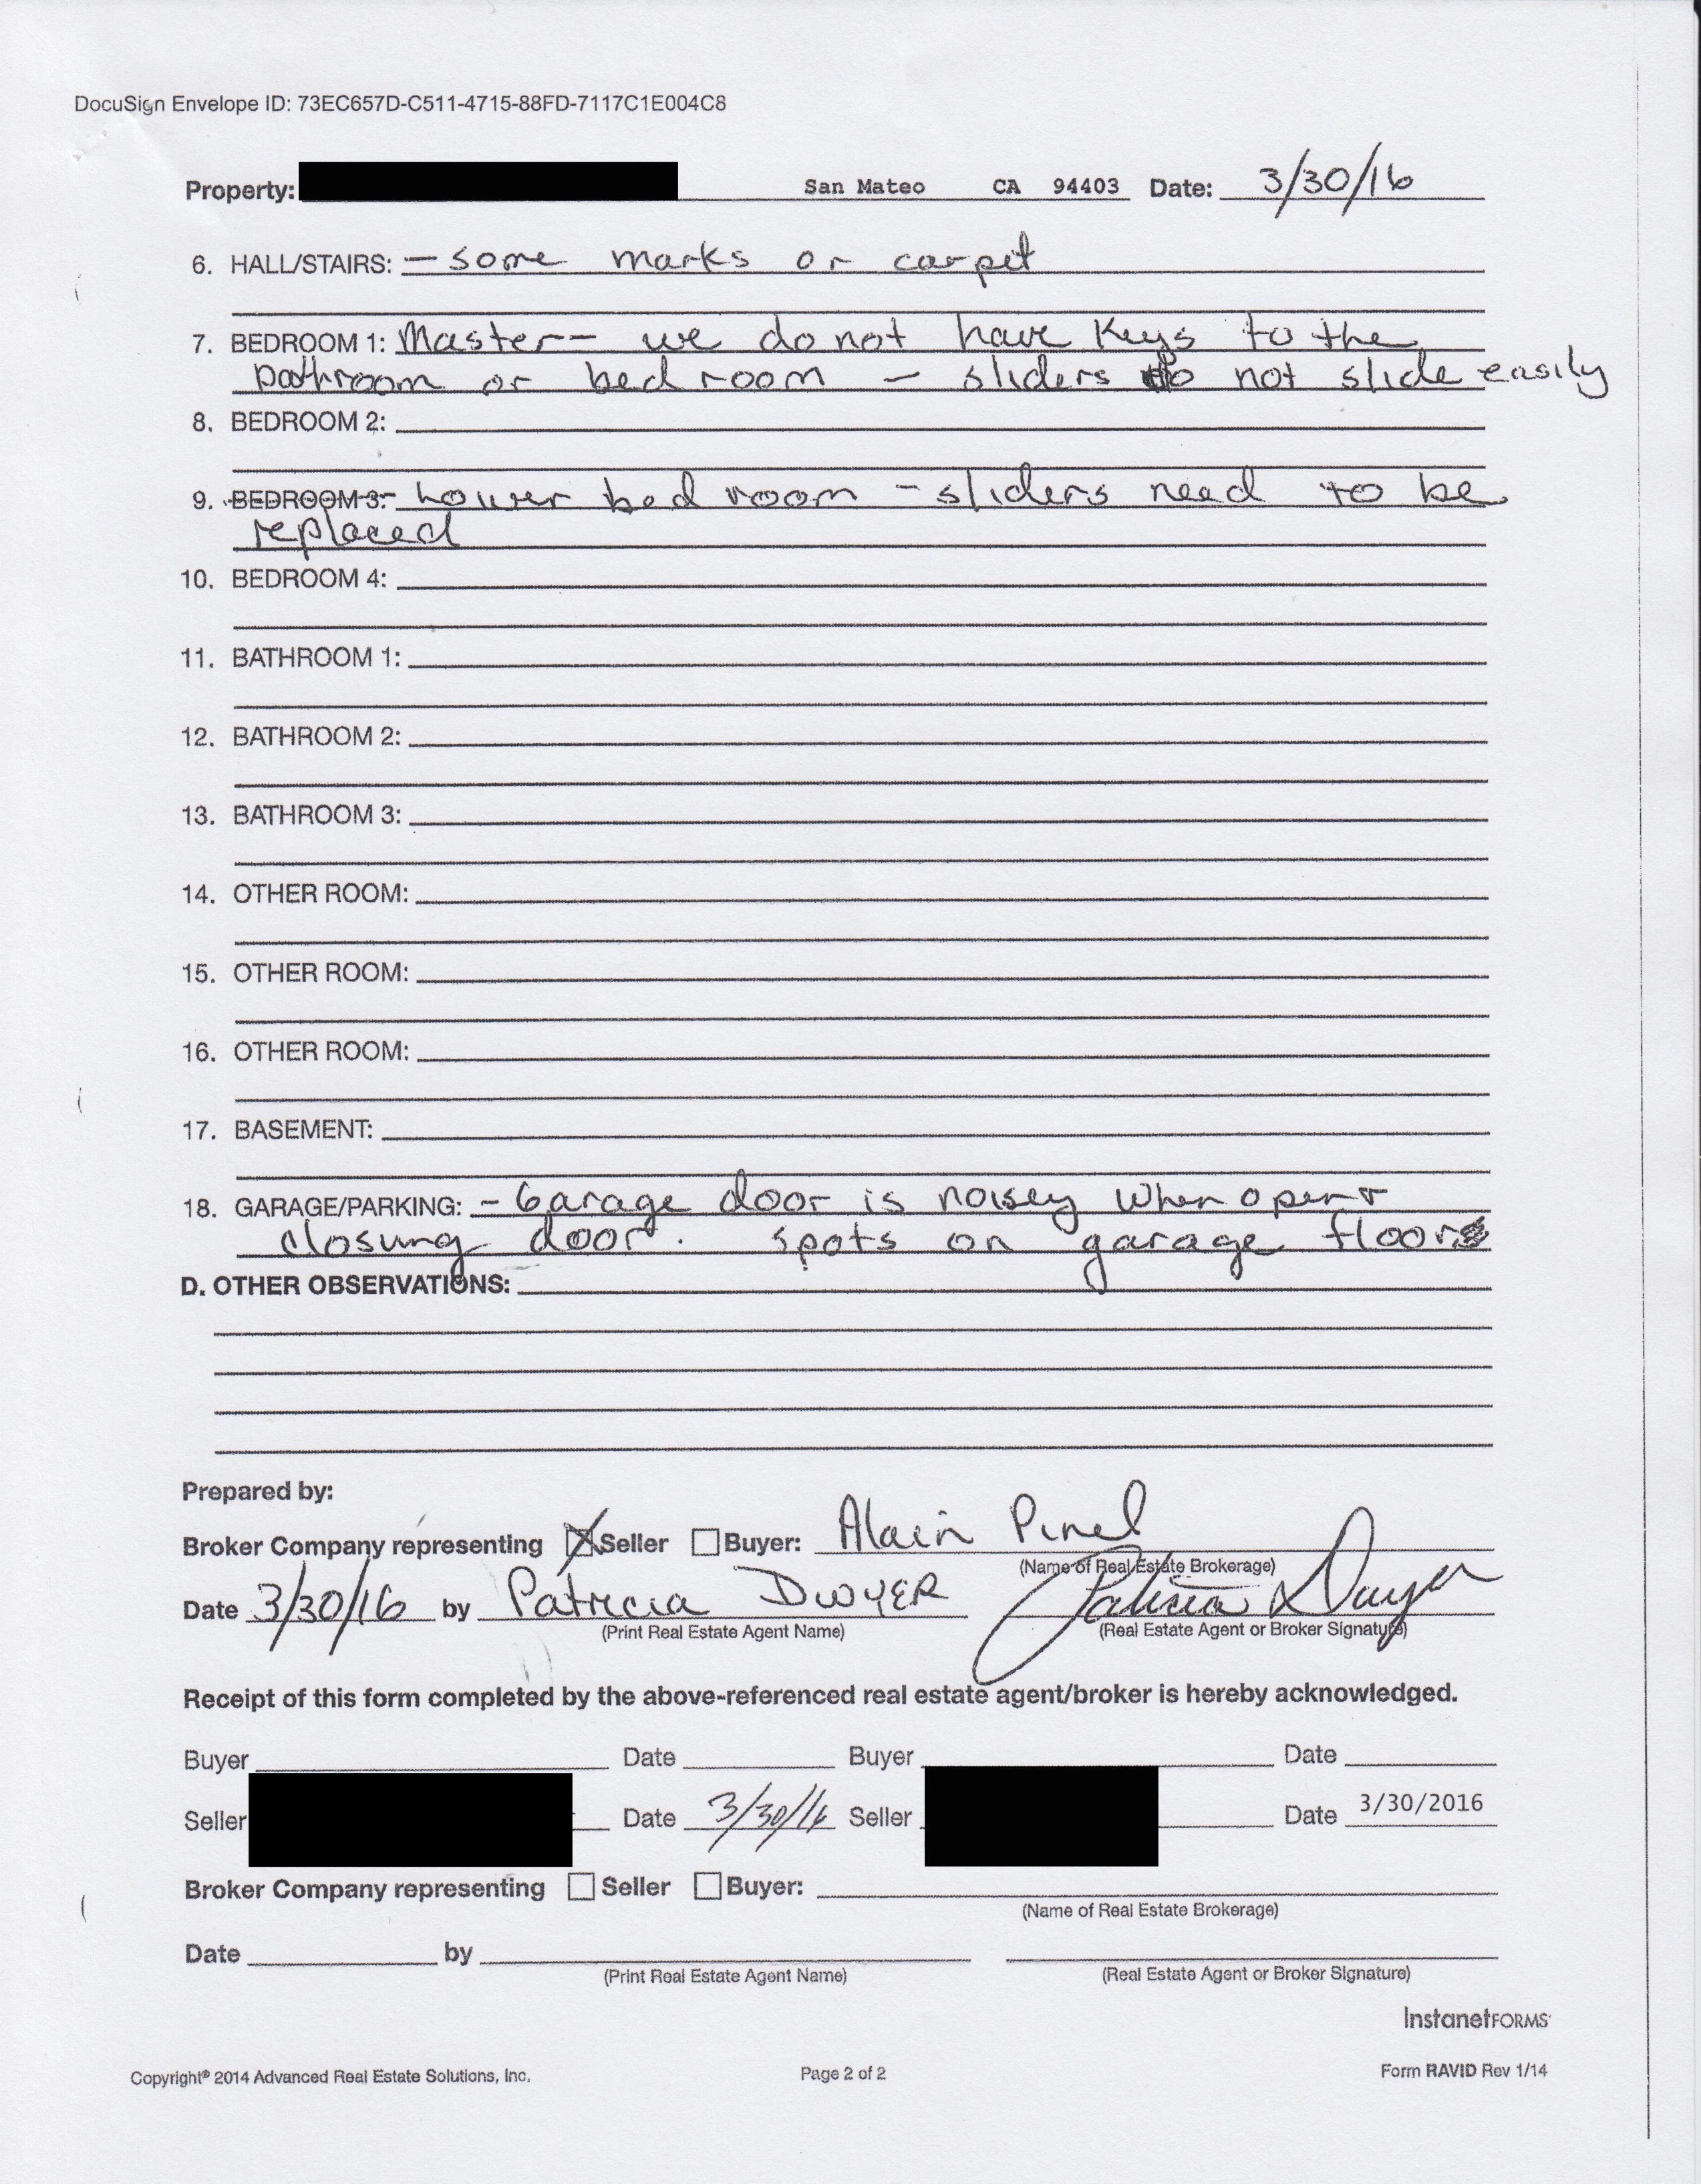 DocuSign Envelope ID: 73EC657D-C511-4715-88FD-7117C1E004C8
Property: San Mateo CA 94403 Date: 3/30/16
6. HALL/STAIRS: - some marks on carpet
7. BEDROOM 1: Master - we do not have keys to the
bathroom or bedroom - sliders do not slide easily
8. BEDROOM 2:
9. BEDROOM 3: Lower bedroom - sliders need to be
replaced
10. BEDROOM 4:
11. BATHROOM 1:
12. BATHROOM 2:
13. BATHROOM 3:
14. OTHER ROOM:
15. OTHER ROOM:
16. OTHER ROOM:
17. BASEMENT:
18. GARAGE/PARKING: - Garage door is noisey when open +
closing door. spots on garage floor
D. OTHER OBSERVATIONS:
Prepared by:
Broker Company representing Seller Buyer: Alain Pinel
(Name of Real Estate Brokerage)
Date 3/30/16 by Patricia DWYER Patricia Dwyer
(Print Real Estate Agent Name) (Real Estate Agent or Broker Signature)
Receipt of this form completed by the above-referenced real estate agent/broker is hereby acknowledged.
Buyer Date Buyer Date
Seller Date 3/30/16 Seller Date 3/30/2016
Broker Company representing Seller Buyer:
(Name of Real Estate Brokerage)
Date by
(Print Real Estate Agent Name) (Real Estate Agent or Broker Signature)
InstanetFORMS
Copyright© 2014 Advanced Real Estate Solutions, Inc. Page 2 of 2 Form RAVID Rev 1/14